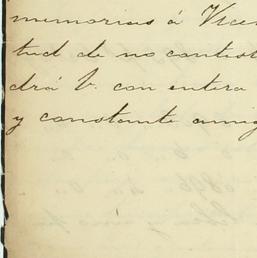 memorias á Vicen
tud de no contest
drá V. con entera
y constante amig